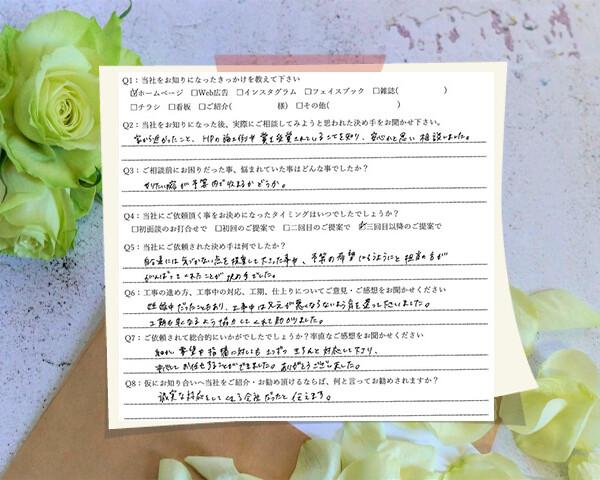 Q1：当社をお知りになったきっかけを教えて下さい
☑ホームページ □Web広告 □インスタグラム □フェイスブック □雑誌( )
□チラシ □看板 □ご紹介( 様) □その他( )
Q2：当社をお知りになった後、実際にご相談してみようと思われた決め手をお聞かせ下さい。
家から近かったこと、HPの施工例や賞を受賞されていることを知り、安心と思い相談しました。
Q3：ご相談前にお困りだった事、悩まれていた事はどんな事でしたか？
が予算内で収まるかどうか。
Q4：当社にご依頼頂く事をお決めになったタイミングはいつでしたでしょうか？
□初面談のお打合せで □初回のご提案で □二回目のご提案で ☑三回目以降のご提案で
Q5：当社にご依頼された決め手は何でしたか？
自分達には気づかない点を提案して下さった事や、予算の希望にそうようにと担当の方が
がんばってくれたことが決め手でした。
Q6：工事の進め方、工事中の対応、工期、仕上りについてご意見・ご感想をお聞かせください
妊娠中だったこともあり、工事中は
工期も早くなるよう協力してくれて助かりました。
Q7：ご依頼されて総合的にいかがでしたでしょうか？率直なご感想をお聞かせください
細かい要望や指摘に対しても、きちんと対応して下さり、
安心してお任せすることができました。ありがとうございました。
Q8：仮にお知り合いへ当社をご紹介・お勧め頂けるならば、何と言ってお勧めされますか？
誠実な対応をしてくれる会社だったと伝えます。